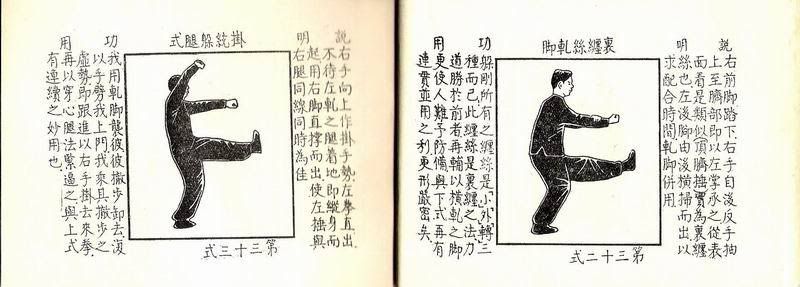 裏纏絲軋脚
說 右前脚踏下右手自後反手抽
上至臍部即以左掌承之從表
面看是類似頂臍捶實為裏纏
明 絲也左後脚由後橫掃而出以
求配合時間軋脚併用
第三十二式
功 躲剛所有之纏絲是「小」「外」「轉」三
種而已此纏絲是裏纏之法力
道勝於前者再輔以橫軋之脚
用 更使人難予防備與下式再有
連貫並用之利更形嚴密矣
掛統躲腿式
說 右手向上作掛手勢左拳直出
不待左軋之腿着地即縱身而
起用右脚直撑而出使左捶與
明 右腿同線同時為佳
第三十三式
功 我用軋脚襲彼彼撤步卸去復
以手劈我上門我乘其撤步之
虛勢即跟進以右手掛去來拳
用 再以穿心腿法緊逼之與上式
有連續之妙用也